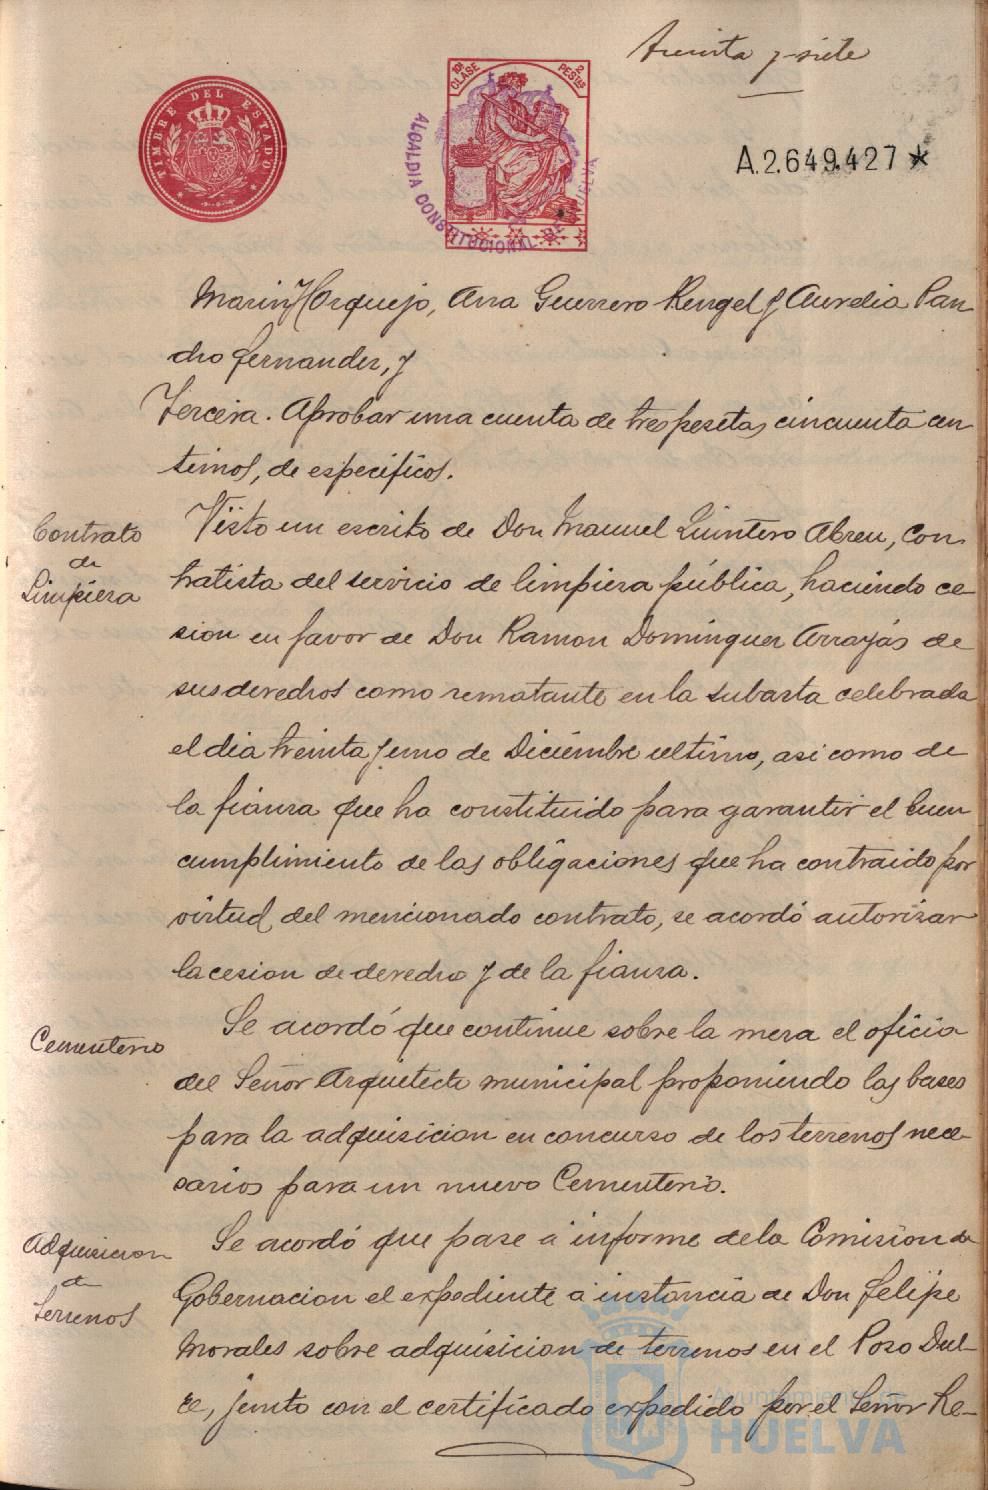 Treinta y siete
TIMBRE DEL ESTADO
10ª CLASE
2 PESETAS
ALCALDIA CONSTITUCIONAL DE HUELVA
A.2.649.427 *
Marin Horquejo, Ana Guerrero Rengel y Aurelia Pan
dro Fernandez, y
Tercera. Aprobar una cuenta de tres pesetas cincuenta cen
timos, de especificos.
Contrato
de
Limpieza
Visto un escrito de Don Manuel Quintero Abreu, con
tratista del servicio de limpieza pública, haciendo ce-
sion en favor de Don Ramon Dominguez Arrayás de
sus derechos como rematante en la subasta celebrada
el dia treinta y uno de Diciembre ultimo, asi como de
la fianza que ha constituido para garantir el buen
cumplimiento de las obligaciones que ha contraido por
virtud del mencionado contrato, se acordó autorizar
la cesion de derecho y de la fianza.
Cementerio
Se acordó que continue sobre la mesa el oficio
del Señor Arquitecto municipal proponiendo las bases
para la adquisicion en concurso de los terrenos nece-
sarios para un nuevo Cementerio.
Adquisicion
de
terrenos
Se acordó que pase á informe de la Comision de
Gobernacion el expediente á instancia de Don Felipe
Morales sobre adquisicion de terrenos en el Pozo Dul-
ce, junto con el certificado expedido por el Señor Re-
Ayuntamiento de
HUELVA